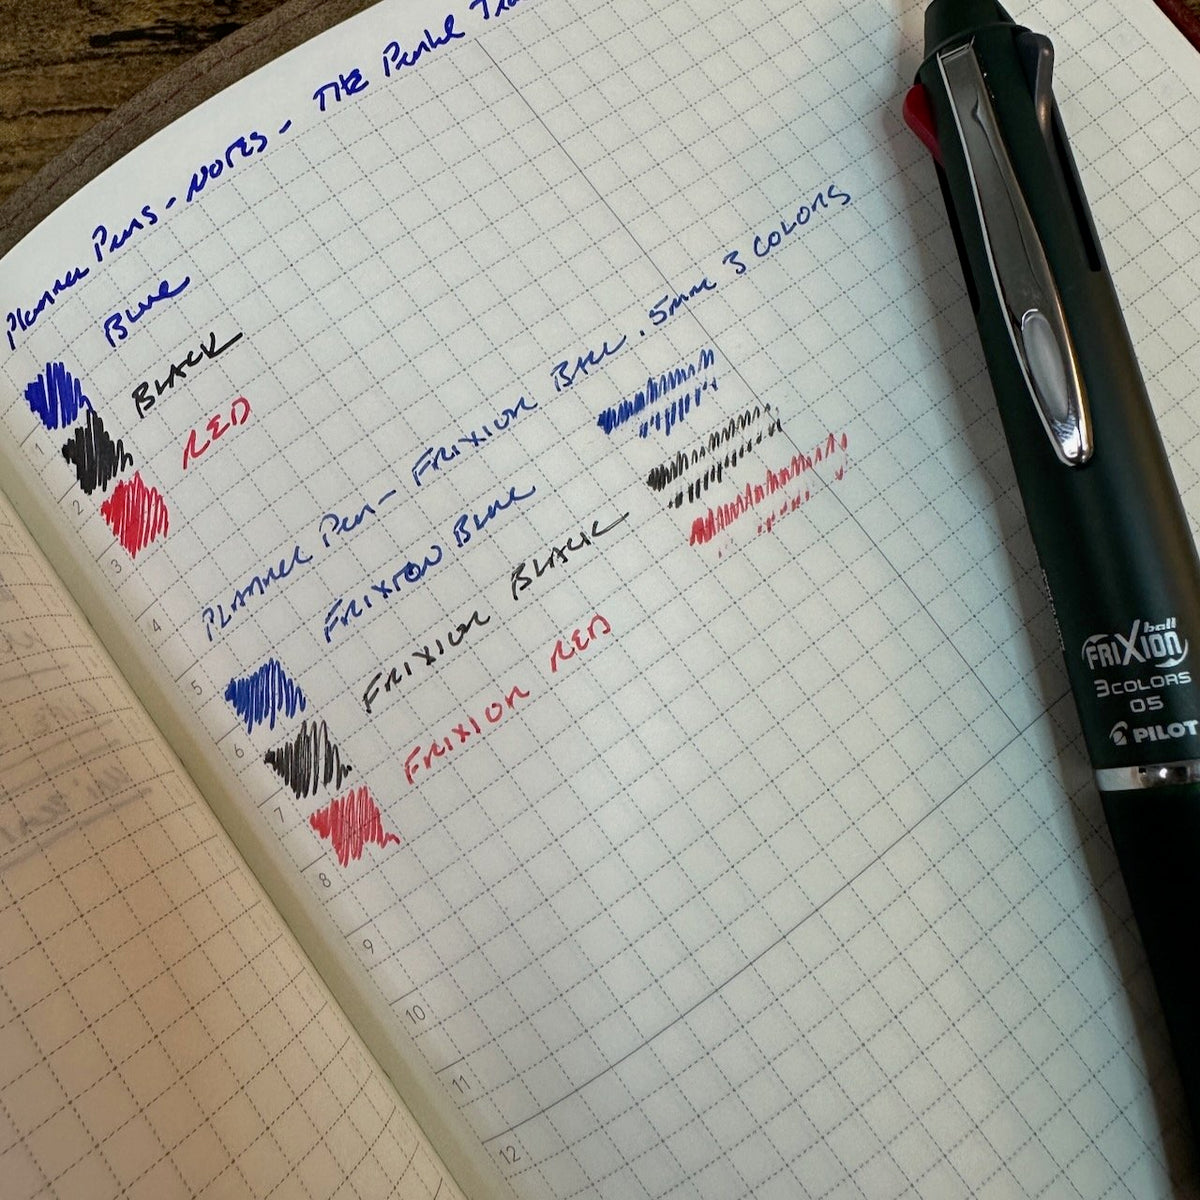 Planner Pens - NOTES - THE
Blue
BLACK
RED
PLANNER Pen - FRIXION BALL .5mm 3 COLORS
FRIXION Blue
FRIXION BLACK
FRIXION RED
1
2
3
4
5
6
7
8
9
10
11
12
FRIXION ball
3COLORS
05
PILOT